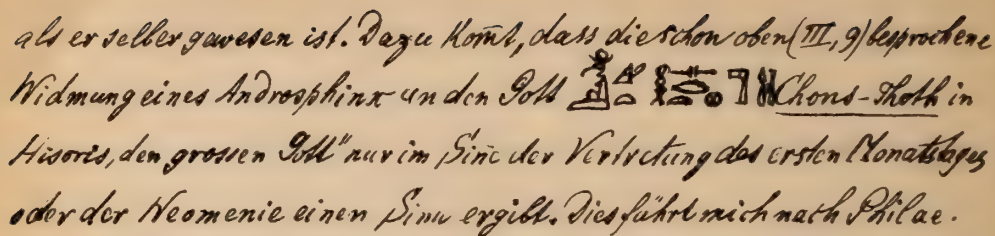 als er selber gewesen ist. Dazu kom̄t, dass die schon oben (III, 9) besprochene
Widmung eines Androsphinx an den Gott Chons-Thoth in
Hisoris, den grossen Gott" nur im Sinne der Vertretung des ersten Monatstages
oder der Neomenie einen Sinn ergibt. Dies führt mich nach Philae.